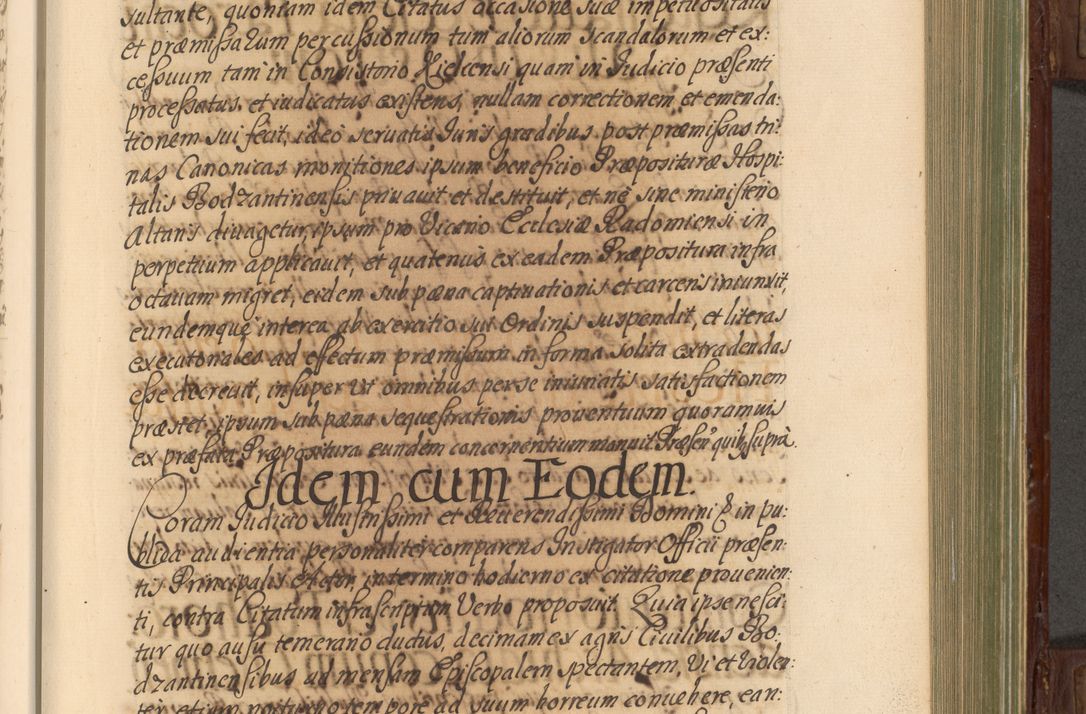 sultante, quoniam idem Citatus occasione suæ impetuositatis
et præmissarum percussionum tum aliorum scandalorum et ex:
cessuum tam in Consistorio Kielcensi quam in Judicio præsenti
processatus et iudicatus existens, nullam correctionem et emenda:
tionem sui fecit, ideo seruatis Juris gradibus post præmissas tri:
nas Canonicas monitiones ipsum beneficio Præposituræ Hospi:
talis Bodzantinensis priuauit et destituit, et ne sine ministerio
Altaris diuagetur, ipsum pro Vicario Ecclesiæ Radomiensi in
perpetuum applicauit, et quatenus ex eadem Præpositura infra
octauam migret, eidem sub pæna captiuationis et carceris iniunxit,
eundemque interea ab exercitio sui Ordinis suspendit, et literas
executoriales ad effectum præmissum in forma solita extradendas
esse decreuit, insuper ut omnibus per se iniuriatis satisfactionem
præstet, ipsum sub pæna sequestrationis prouentuum quorumuis
ex præfata Præpositura eundem concernentium monuit. Præsen' quib9 supra.
Idem cum Eodem.
Coram Judicio Illustrissimi et Reuerendissimi Domini & in pu:
blica audientia personaliter comparens Instigator Officii præsen:
tis Principalis Actor, in termino hodierno ex citatione prouenien:
ti, contra Citatum infrascriptum Verbo proposuit. Quia ipse nesci:
tur quo ausu temerario ductus, decimam ex agris Ciuilibus Bo:
dzantinensibus ad mensam Episcopalem spectantem, Vi et Violen:
ter, etiam nocturno tempore ad suum horreum conuehere, ean: